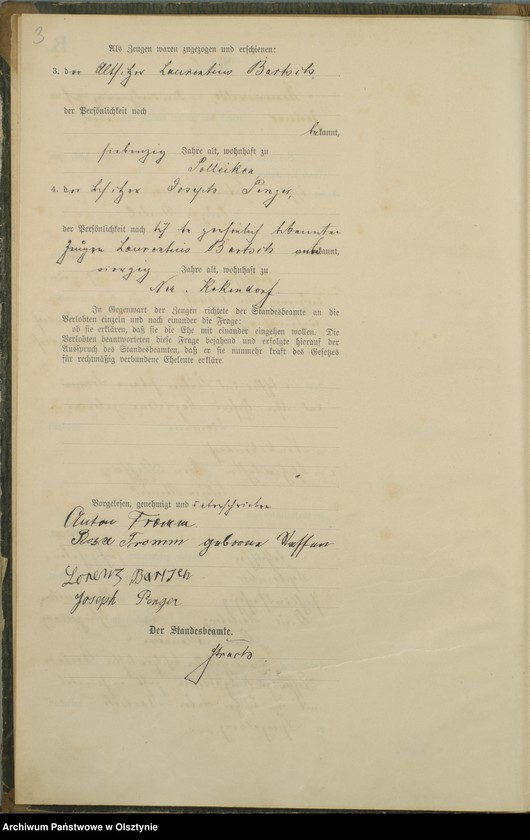 3
Als Zeugen waren zugezogen und erschienen:
3. der Altsitzer Laurentius Bartsch,
der Persönlichkeit nach
bekannt,
siebenzig Jahre alt, wohnhaft zu
Polleiken
4. der Besitzer Joseph Penger,
der Persönlichkeit nach
Zeugen Laurentius Bartsch kannt,
vierzig Jahre alt, wohnhaft zu
Neu. Kokendorf.
In Gegenwart der Zeugen richtete der Standesbeamte an die
Verlobten einzeln und nach einander die Frage:
ob sie erklären, daß sie die Ehe mit einander eingehen wollen. Die
Verlobten beantworteten diese Frage bejahend und erfolgte hierauf der
Ausspruch des Standesbeamten, daß er sie nunmehr kraft des Gesetzes
für rechtmäßig verbundene Eheleute erkläre.
Vorgelesen, genehmigt und unterschrieben
Anton Fromm
Rosa Fromm geborene
Lorenz Bartsch
Joseph Penger
Der Standesbeamte.
Archiwum Państwowe w Olsztynie